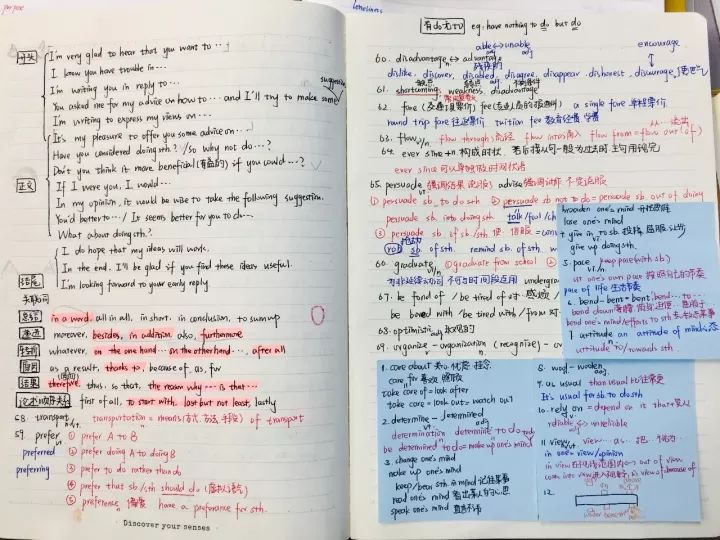 purpose
开头
I'm very glad to hear that you want to …
I know you have trouble in …
I'm writing you in reply to …
You asked me for my advice on how to … and I'll try to make some suggestion
I'm writing to express my views on …
正文
It's my pleasure to offer you some advice on …
Have you considered doing sth? / So why not do …?
Don't you think it more beneficial (有益的) if you could …?
If I were you, I would …
In my opinion, it would be wise to take the following suggestion.
You'd better to … / It seems better for you to do …
What about doing sth?
结尾
I do hope that my ideas will work.
In the end. I'll be glad if you find these ideas useful.
I'm looking forward to your early reply
总结 in a word. all in all, in short. in conclusion, to sum up
递进 moreover. besides, in addition also, furthermore
转折 whatever. on the one hand … on the other hand …, after all
原因 as a result, thanks to, because of. as, for
结果 therefore, thus. so that, the reason why … is that …
first of all, to start with, last but not least, lastly
58. transport transportation = means (方式, 方法, 手段) of transport
59. prefer ① prefer A to B
preferred ② prefer doing A to doing B
preferring ③ prefer to do rather than do
④ prefer that sb/sth should do (虚拟语气)
⑤ preference 偏爱 have a preference for sth.
Discover your senses
loneliness
有do无to eg. have nothing to do but do
able ↔ unable
adj
60. disadvantage ↔ advantage
n.
encourage
dislike. discover, disabled, disagree, disappear, dishonest, discourage
61. shortcoming, weakness, disadvantage
62. fare fee a single fare 单程票价
round trip fare 往返票价 tuition fee 教育经费 学费
63. flow flow through 流经 flow into 流入 flow from = flow out (of)
64. ever since +n. 构成时状 若后接从句一般为过去时 主句用现完
ever since 可以单独放句末做状语
65. persuade 强调结果 (说服) advise 强调动作 不一定说服
① persuade sb to do sth ② persuade sb not to do = persuade sb out of doing
persuade sb. into doing sth talk / fool / ch
③ persuade sb of sth / sth 使…信服 = conv
rob sb. of sth. remind sb. of sth. w
66. graduate ① graduate from school ②
为非延续动词 不可与时间段连用 undergradu
67. be fond of / be tired of 对…感
be bored with / be tired with / from 对
68. optimistic adj 乐观的
69. organize — organization (recognize) —
1. care about 关心, 忧虑, 惦念
care for 喜欢 照顾
take care of = look after
take care = look out = watch out
2. determine — determined
determination determine to do
be determined to do = make up one's mind
3. change one's mind
make up one's mind
keep / bear sth. in mind 记住某事
read one's mind 看出某人的心思
speak one's mind 直言不讳
broaden one's mind 开拓思维
lose one's mind
4. give in to sb. 投降, 屈服, 让步
give up doing sth.
5. pace keep pace (with sb)
at one's own pace 按照自己的节奏
pace of life 生活节奏
6. bend — bent — bent bend … to …
bend one's mind / efforts to sth 专心致志某事
7. attitude an attitude of mind 心态
attitude to / towards sth
8.
9. as usual than usual 比往常更
It's usual for sb to do sth
10. rely on = depend on it that + 某人
reliable ↔ unreliable
11. view view … as 把…视为
in one's view / opinion
in view 在视线范围内 ↔ out of view
come into view 进入视野 in view of = because of
12.